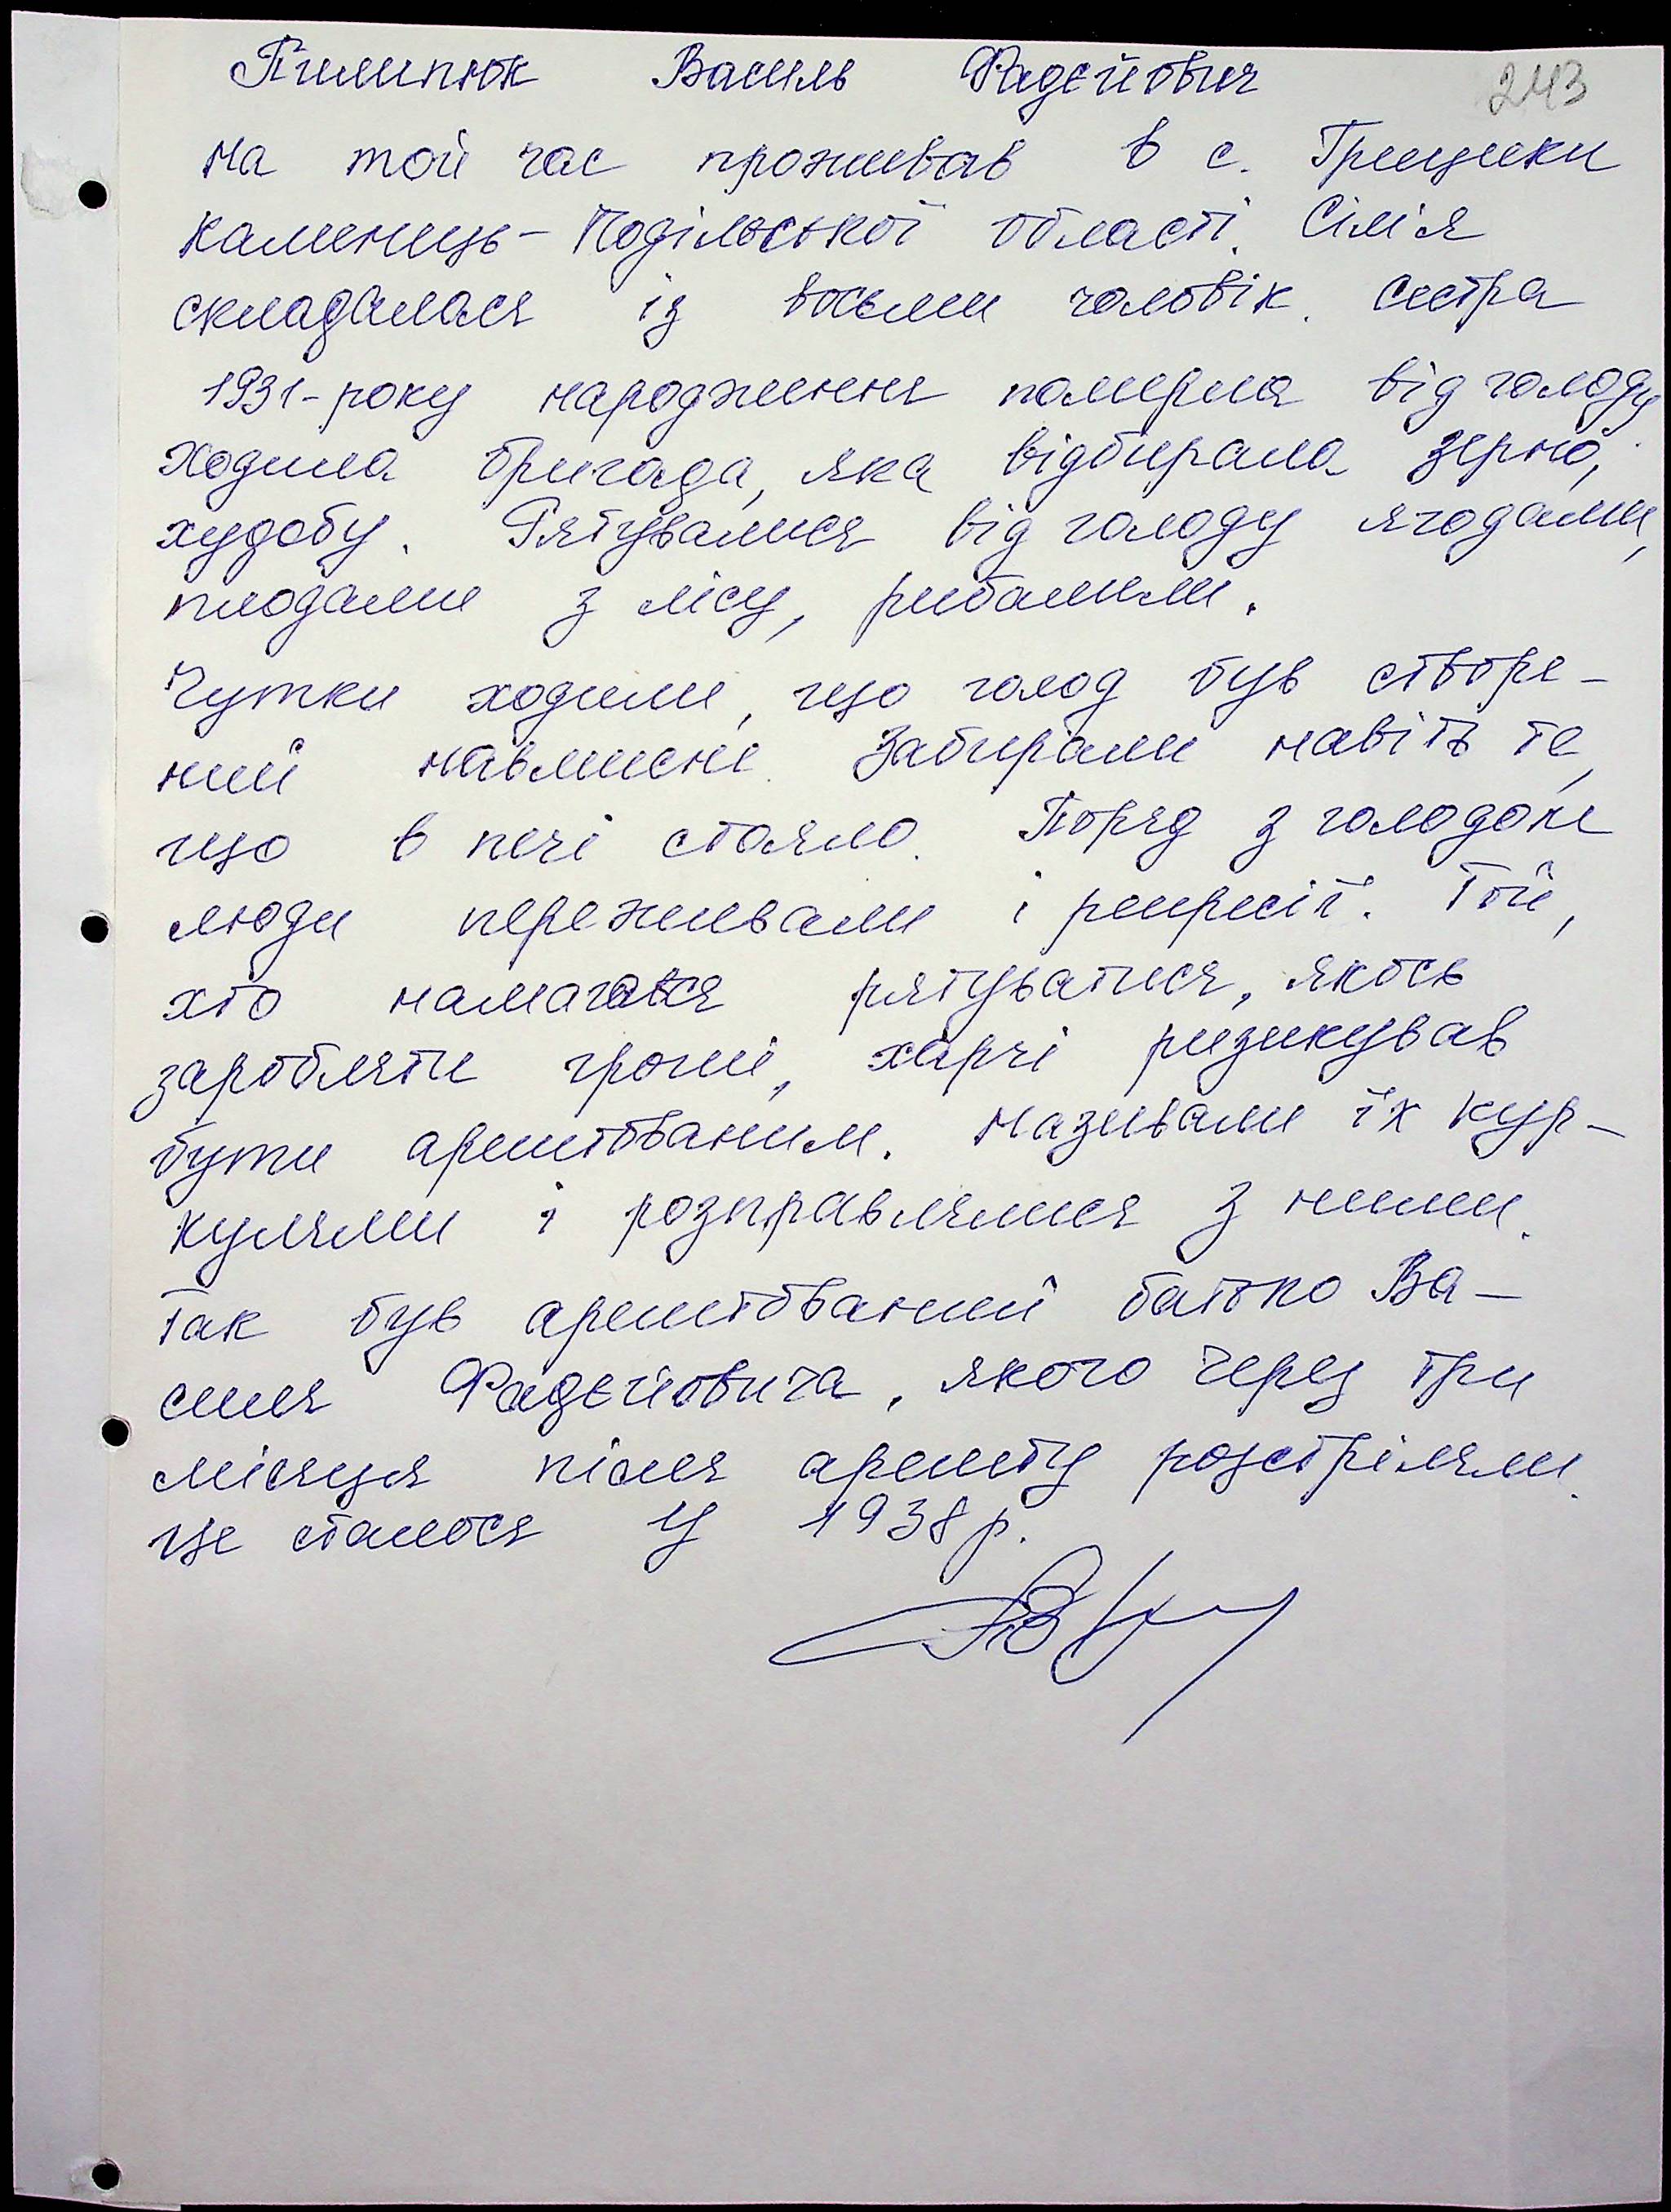 Пилипюк Василь Фадєйович
243
на той час проживав в с. Грицики
Каминець-Подільської області. Сім'я
складалася із восьми чоловік. Сестра
1931-року народження померла від голоду.
Ходила бригада, яка відбирала зерно,
худобу. Рятувалися від голоду ягодами,
плодами з лісу, рибалили.
Чутки ходили, що голод був створе-
ний навмисне. Забирали навіть те,
що в печі стояло. Поряд з голодом
люди переживали і репресії. Той,
хто намагався рятуватися, якось
заробляти гроші, харчі ризикував
бути арештованим. Називали їх кур-
кулями і розправлялися з ними.
Так був арештований батько Ва-
силя Фадєйовича, якого через три
місяця після арешту розстріляли.
Це сталося у 1938 р.